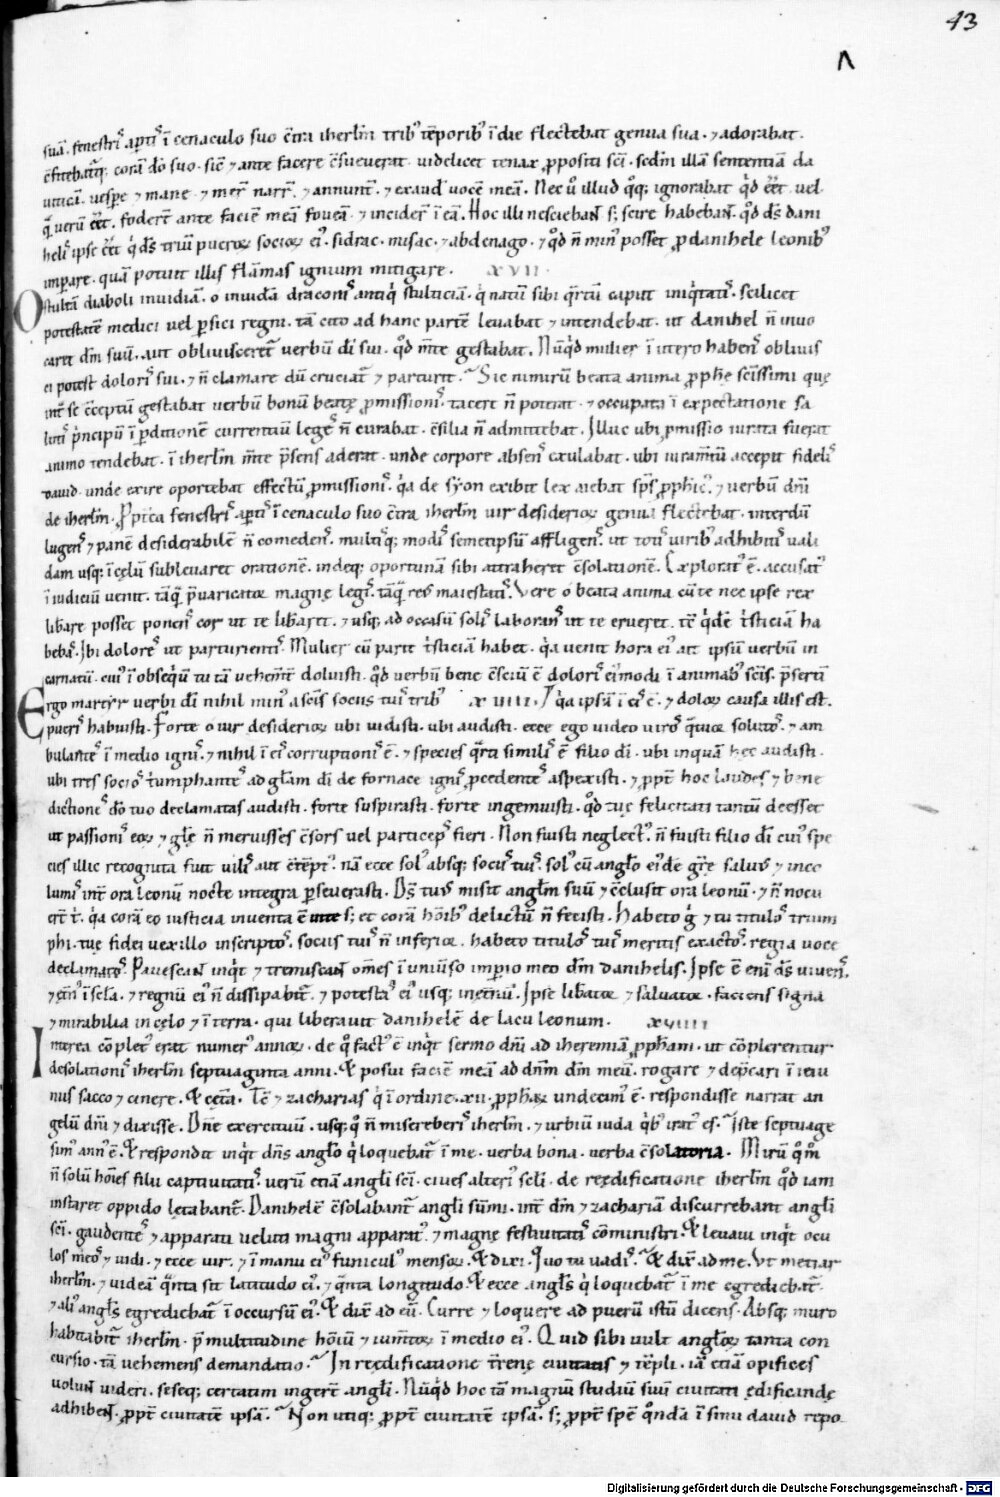 43
suā. fenestrꝭ aꝑtꝭ ī cenaculo suo c̄tra iherl̄m tribꝰ tēporibꝰ ī die flectebat genua sua. ⁊ adorabat.
c̄fitebatᷓqꝫ corā dō suo. sic̄ ⁊ ante facere c̄sueuerat. videlicet tenax ꝓpositi sc̄i. scd̄m illā sententiā da
uiticā. uesꝑe ⁊ mane. ⁊ mer̄ narr̄. ⁊ annunt̄. ⁊ exaud̄ vocē meā. Nec u̓ illud qͦqꝫ ignorabat qͥd eēt. vel
q̄ uerū eēt. foder̄t ante faciē meā foueā. ⁊ incider̄t ī eā. Hoc illi nesciebant sꝫ scire habebant. qͦd ds̄ dani
helꝭ ipse eēt qͥ ds̄ triū pueroꝝ socioꝝ eiꝰ. sidrac. misac. ⁊ abdenago. ⁊ qͦd n̄ minꝰ posset ꝓ danihele leonibꝰ
imꝑare. quā potuit illis flāmas ignium mitigare. XVII.
O stultā diaboli inuidiā. o inuidā draconꝭ antiqͥ stulticiā. qͥ natū sibi qͣrtū caput iniqͥtatꝭ. scilicet
potestatē medici uel ꝑsici regni. tā cito ad hanc partē leuabat ⁊ intendebat. ut danihel n̄ inuo
caret dm̄ suū. aut obliuisceret᷑ uerbū dī sui. qͦd m̄te gestabat. Nūqͥd mulier ī utero habenꝭ obliuis
ci potest dolorꝭ sui. ⁊ n̄ clamare dū cruciat᷑ ⁊ parturit. Sic nimirū beata anima ꝓph̄ę sc̄issimi quę
int̄ se c̄ceptū gestabat uerbū bonū beatę ꝓmissionꝭ. tacere n̄ poterat. ⁊ occupata ī expectatione sa
lutꝭ pͥncipiū ī ꝑditionē currentiū legē n̄ curabat. c̄silia n̄ admittebat. Illuc ubi ꝓmissio iurata fuerat
animo tendebat. ī iherl̄m m̄te p̄sens aderat. unde corpore absenꝭ exulabat. ubi iuram̄tū accepit fidelꝭ
dauid. unde exire oportebat effectū ꝓmissionꝭ. qͥa de syon exibit lex aiebat sp̄s ꝓph̄icꝰ. ⁊ uerbū dn̄i
de iherl̄m. Ꝓpt̄ea fenestrꝭ aꝑtꝭ ī cenaculo suo c̄tra iherl̄m uir desiderioꝝ genua flectebat. interdū
lugenꝭ ⁊ panē desiderabilē n̄ comedenꝭ. multisqꝫ modꝭ semetipsū affligenꝭ. ut totꝭ uiribꝰ adhibitꝭ uali
dam usqꝫ ī cęlū subleuaret orationē. indeqꝫ oportunā sibi attraheret c̄solationē. Exploratꝰ ē. accusatꝰ
ī iudiciū uenit. tāqͣ p̄uaricatoꝛ magnę legꝭ. tāqͣ reꝰ maiestatꝭ. Vere o beata anima cū te nec ipse rex
lib̄are posset ponenꝭ cor ut te lib̄aret. ⁊ usqꝫ ad occasū solꝭ laboranꝭ ut te erueret. tc̄ qͥdē tͥsticiā ha
bebaꝭ. Ibi dolorꝭ ut parturientꝭ. Mulier cū parit tͥsticiā habet. qͥa uenit hora eiꝰ ait ipsū uerbū in
carnatū. cuiꝰ ī obseqͥū tu tā vehem̄t̄ doluisti. qͦd uerbū bene c̄sciū ē dolorꝭ eiꝰmodi ī animabꝰ sc̄is. p̄serti
Ergo martyr uerbi dī nihil minꝰ a sc̄is sociis tuis tribꝰ XVIII. qͥa ipsū ī eꝭ ē. ⁊ doloꝝ causa illis est.
puerꝭ habuisti. Forte o uir desiderioꝝ ubi uidisti. ubi audisti. ecce ego video uirꝭ qͣtuoꝛ solutꝭ. ⁊ am
bulantꝭ ī medio ignꝭ. ⁊ nihil ī eꝭ corruptionꝭ ē. ⁊ species qͣrti similꝭ ē filio dī. ubi inquā hec audisti.
ubi tres sociꝭ tͥumphantꝭ ad gl̄am dī de fornace ignꝭ ꝓcedentꝭ aspexisti. ⁊ ꝓpt̄ hoc laudes ⁊ bene
dictionꝭ dō tuo declamatas audisti. forte suspirasti. forte ingemuisti. qͦd tuę felicitati tantū deesset
ut passionꝭ eoꝝ ⁊ gl̄ę n̄ meruisses c̄sors uel particepꝭ fieri. Non fuisti neglectꝰ. n̄ fuisti filio dī cuiꝰ spe
cies illic recognita fuit uilꝭ aut c̄tēptꝰ. nā ecce solꝰ absqꝫ sociꝭ tuꝭ. solꝰ cū angl̄o eiꝰdē gr̄ę saluꝰ ⁊ inco
lumꝭ int̄ ora leonū nocte integra ꝑseuerasti. Ds̄ tuꝰ misit angl̄m suū ⁊ c̄clusit ora leonū. ⁊ n̄ nocu
er̄t t̄. qͥa corā eo iusticia inuenta ē in te sꝫ et corā hōibꝰ delictū n̄ fecisti. Habeto ḡ ⁊ tu titulꝭ trium
phi. tuę fidei uexillo inscriptꝭ. sociis tuꝭ n̄ inferioꝛ. habeto titulꝭ tuꝭ meritis exactꝭ. regia uoce
declamatꝭ. Pauescant inqͥt ⁊ tremiscant om̄es ī uniuso imꝑio meo dm̄ danihelis. Ipse ē enī ds̄ uiuenꝭ.
⁊ ęt̄nꝰ ī scl̄a. ⁊ regnū eiꝰ n̄ dissipabit᷑. ⁊ potestaꝭ eiꝰ usqꝫ inęt̄nū. Ipse lib̄atoꝛ ⁊ saluatoꝛ. faciens signa
⁊ mirabilia in cęlo ⁊ ī terra. qui liberauit danihelē de lacu leonum. XVIIII
Interea cōpletꝰ erat numerꝰ annoꝝ. de qͦ factꝰ ē inqͥt sermo dn̄i ad iheremiā ꝓph̄am. ut cōplerentur
desolationꝭ iherl̄m septuaginta anni. Et posui faciē meā ad dn̄m dm̄ meū. rogare ⁊ dep̄cari ī ieiu
niis sacco ⁊ cinere. Et cęt̄a. Tc̄ ⁊ zacharias qͥ ī ordine .xii. ꝓph̄aꝝ undecimꝰ ē. respondisse narrat an
gelū dn̄i ⁊ dixisse. Dn̄e exercituū. usqꝫ qͦ n̄ misereberꝭ iherl̄m. ⁊ urbiū iuda qͥbꝰ iratꝰ es. Iste septuage
simꝰ annꝰ ē. Et respondit inqͥt dn̄s angl̄o qͥ loquebat᷑ ī me. verba bona. verba c̄solatoria. Mirū qͦm̄
n̄ solū hōies filii captiuitatꝭ. uerū etiā angl̄i sc̄i. ciues alterꝰ scl̄i. de reędificatione iherl̄m qͦd iam
instaret oppido lętabant᷑. Danihelē c̄solabant᷑ angl̄i sūmi. int̄ dm̄ ⁊ zachariā discurrebant angl̄i
sc̄i. gaudentꝭ ⁊ apparati ueluti magni apparatꝰ. ⁊ magnę festiuitatꝭ cōministri. Et leuaui inqͥt ocu
los meos ⁊ uidi. ⁊ ecce uir. ⁊ ī manu eiꝰ funiculꝰ mensoꝝ. Et dixi. Quo tu uadꝭ. Et dix̄ ad me. Vt metiar
iherl̄m. ⁊ uideā qͣnta sit latitudo eiꝰ. ⁊ qͣnta longitudo. Et ecce angl̄s qͥ loquebat᷑ ī me egrediebat᷑.
⁊ aliꝰ angl̄s egrediebat᷑ ī occursū eiꝰ. Et dix̄ ad eū. Curre ⁊ loquere ad puerū istū dicens. Absqꝫ muro
habitabit᷑ iherl̄m. p̄ multitudine hōiū ⁊ ium̄toꝝ ī medio eiꝰ. Quid sibi uult angl̄oꝝ tanta con
cursio. tā vehemens demandatio. In reędificatione t̄renę ciuitatis ⁊ tēpli. iā etiā opifices
uolunt uideri. seseqꝫ certatim inger̄t angl̄i. Nūqͥd hoc tā magnū studiū suū ciuitati ędificandę
adhibent. ꝓpt̄ ciuitatē ipsā. Non utiqꝫ ꝓpt̄ ciuitatē ipsā. sꝫ ꝓpt̄ spē qͦndā ī sinu dauid repo
Digitalisierung gefördert durch die Deutsche Forschungsgemeinschaft - DFG